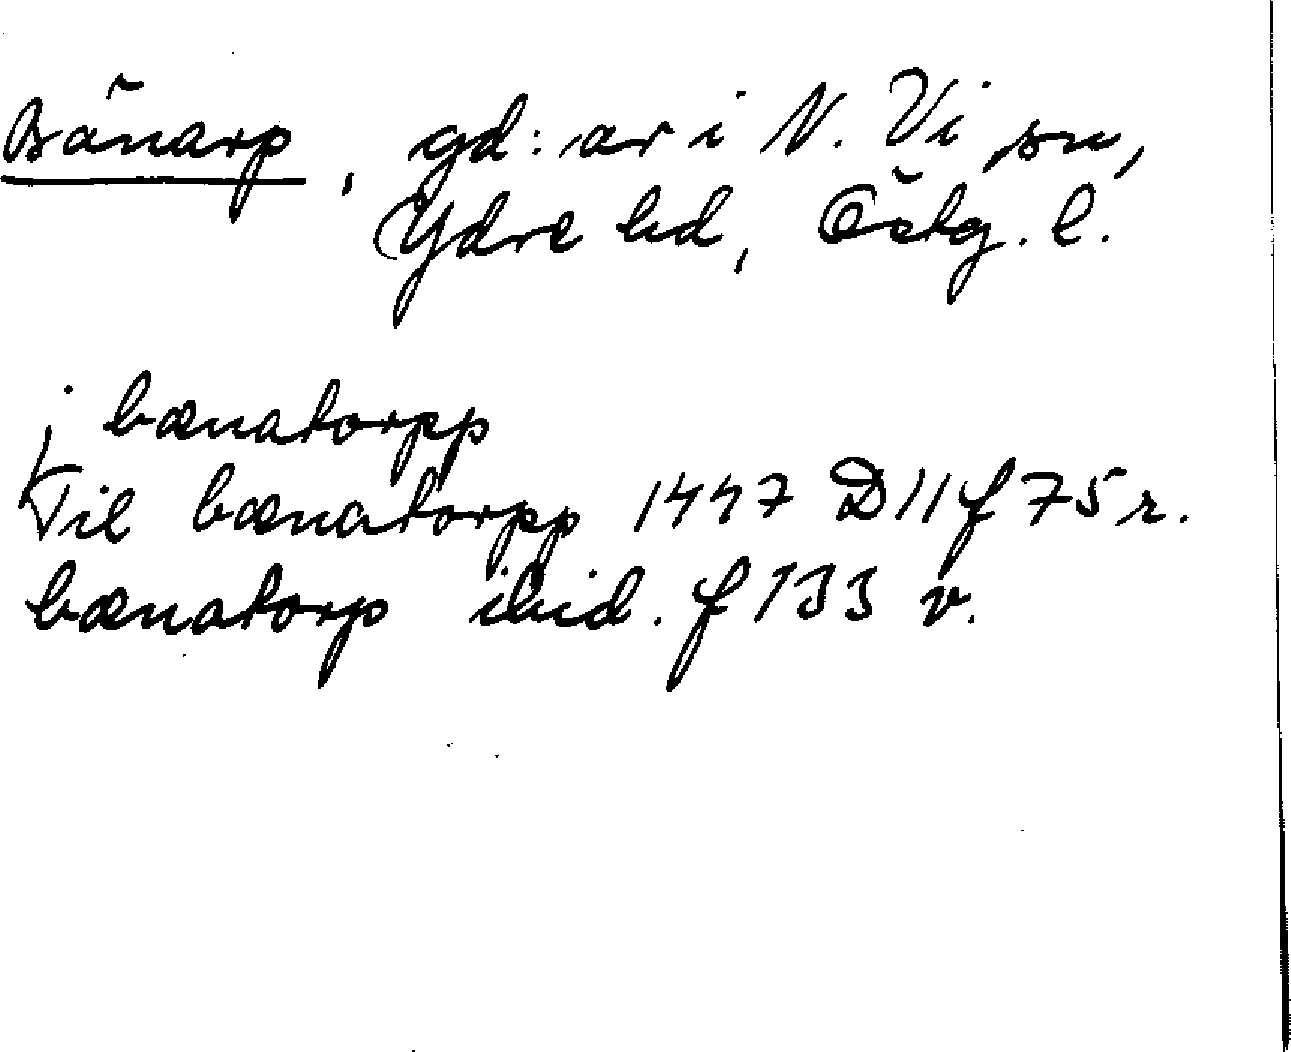 Bänarp, gd:ar i N. Vi sn,
Ydre hd, Östg. l.
j bænatorpp
Til bænatorpp 1447 D11 f 75 r.
bænatorp ibid. f 133 v.